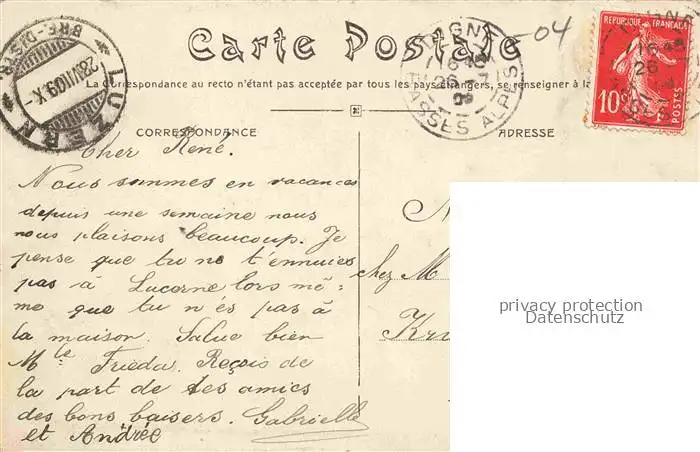 Carte Postale
La Correspondance au recto n'étant pas acceptée par tous les pays étrangers, se renseigner à la
CORRESPONDANCE
ADRESSE
LUZERN
BRF. DISTR.
28.VII.09.X-
DIGNE
BASSES ALPES
16
26 -7
09
-04
REPUBLIQUE FRANÇAISE
10c
POSTES
Cher René.
Nous sommes en vacances
depuis une semaine nous
nous plaisons beaucoup. Je
pense que tu ne t'ennuies
pas à Lucerne lors mê-
me que tu n'és pas à
la maison. Salue bien
Mlle Frieda. Reçois de
la part de tes amies
des bons baisers. Gabrielle
et Andrée
chez M
privacy protection
Datenschutz